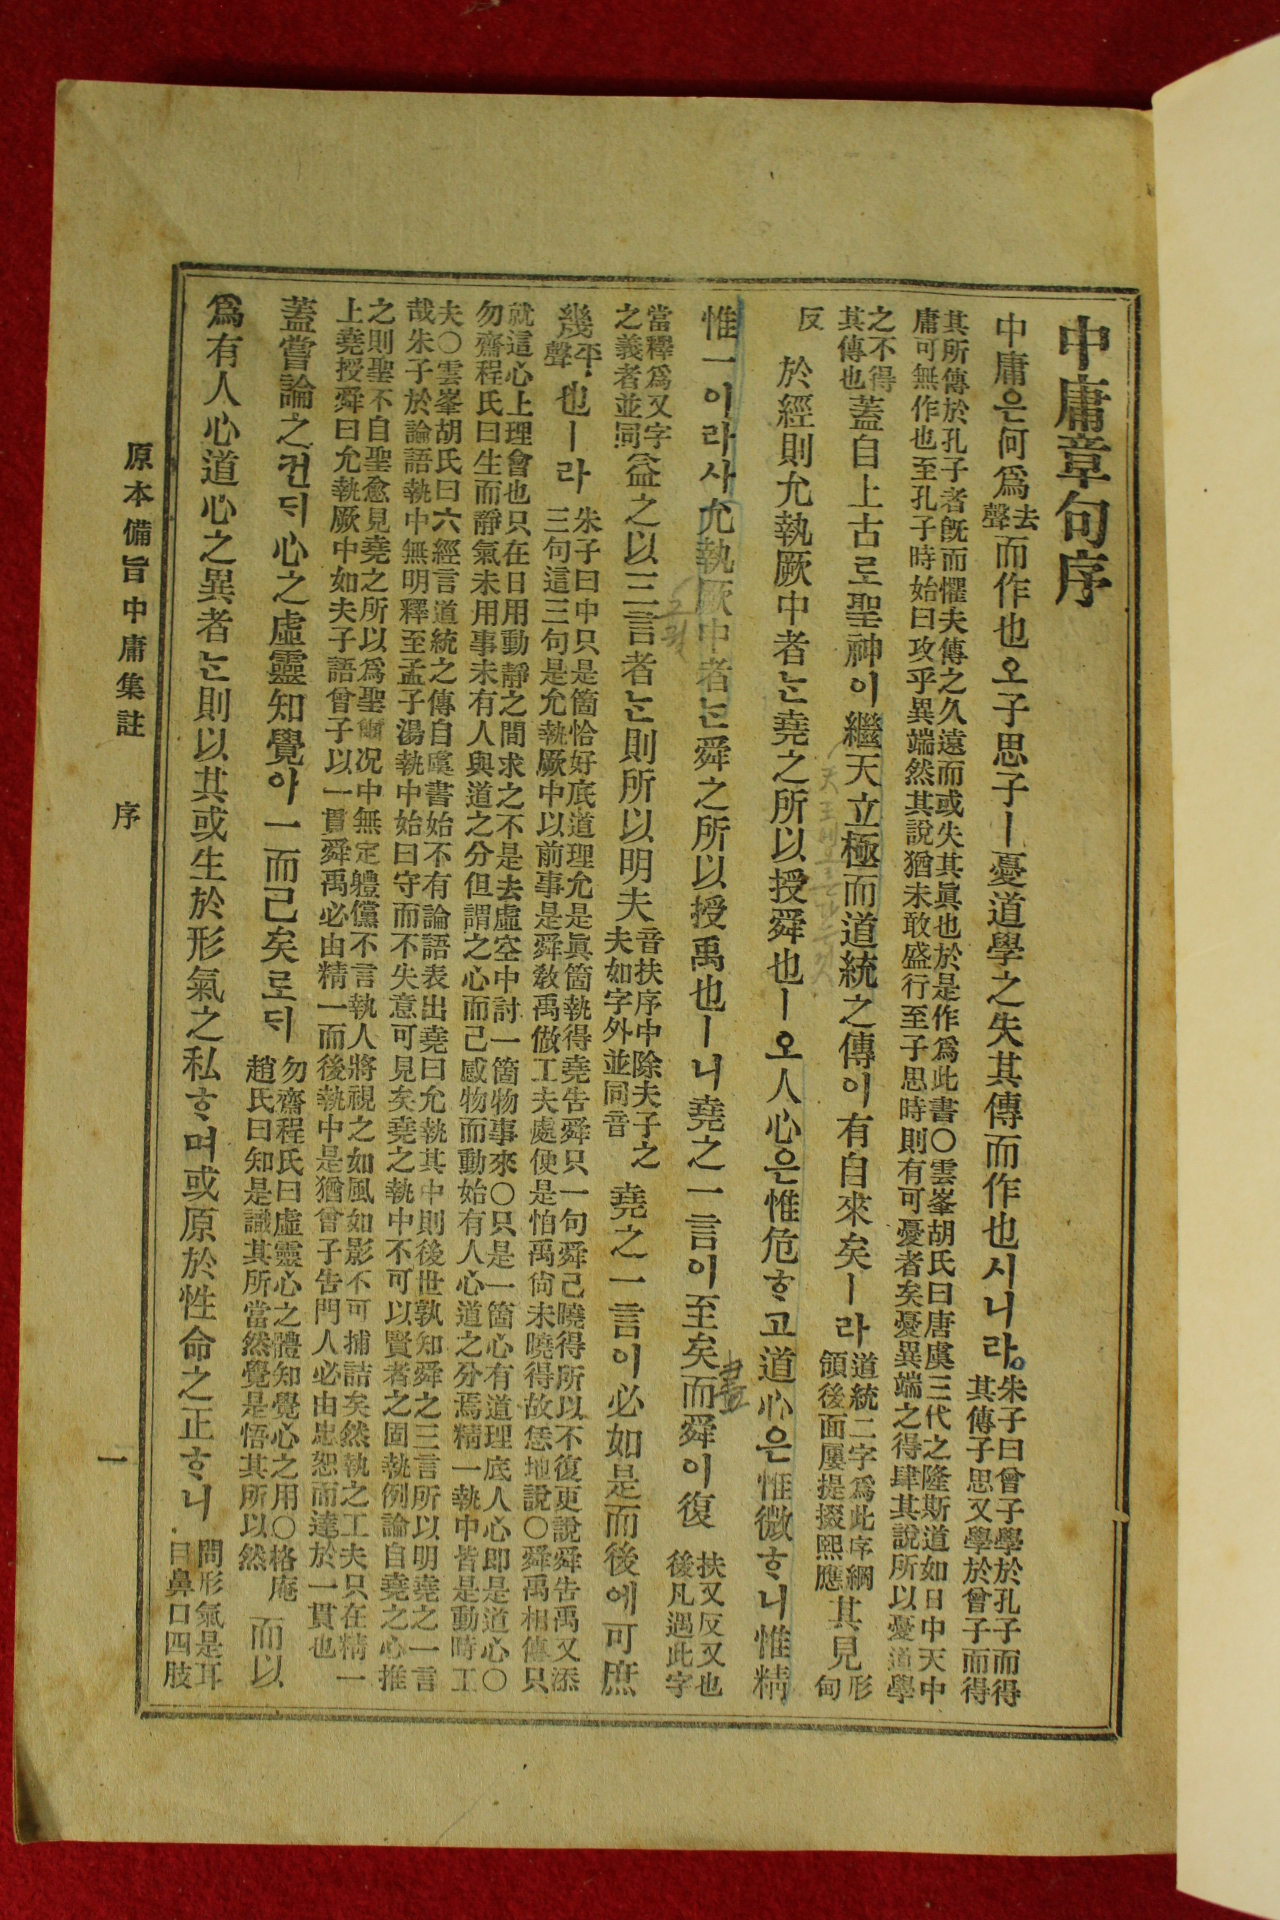 中庸章句序
中庸은何爲去聲而作也오子思子ㅣ憂道學之失其傳而作也시니라。朱子曰曾子學於孔子而得其傳子思又學於曾子而得
其所傳於孔子者旣而懼夫傳之久遠而或失其眞也於是作爲此書〇雲峯胡氏曰唐虞三代之隆斯道如日中天中
庸可無作也至孔子時始曰攻乎異端然其說猶未敢盛行至子思時則有可憂者矣憂異端之得肆其說所以憂道學
之不得其傳也蓋自上古로聖神이繼天立極而道統之傳이有自來矣ㅣ라道統二字爲此序綱領後面屢提掇照應其見形甸
反於經則允執厥中者는堯之所以授舜也ㅣ오人心은惟危ᄒᆞ고道心은惟微ᄒᆞ니惟精
惟一이라사允執厥中者는舜之所以授禹也ㅣ니堯之一言이至矣盡而舜이復扶又反又也後凡遇此字
當釋爲又字之義者並同益之以三言者는則所以明夫音扶序中除夫子之夫如字外並同音堯之一言이必如是而後에可庶
幾平聲也ㅣ라朱子曰中只是箇恰好底道理允是眞箇執得堯告舜只一句舜已曉得所以不復更說舜告禹又添三句這三句是允執厥中以前事是舜敎禹做工夫處便是怕禹尙未曉得故恁地說〇舜禹相傳只
就這心上理會也只在日用動靜之間求之不是去虛空中討一箇物事來〇只是一箇心有道理底人心即是道心〇
勿齋程氏曰生而靜氣未用事未有人與道之分但謂之心而已感物而動始有人心道之分焉精一執中皆是動時工
夫〇雲峯胡氏曰六經言道統之傳自虞書始不有論語表出堯曰允執其中則後世孰知舜之三言所以明堯之一言
哉朱子於論語執中無明釋至孟子湯執中始曰守而不失意可見矣堯之執中不可以賢者之固執例論自堯之心推
之則聖不自聖愈見堯之所以爲聖爾况中無定軆儻不言執人將視之如風如影不可捕詰矣然執之工夫只在精一
上堯授舜曰允執厥中如夫子語曾子以一貫舜禹必由精一而後執中是猶曾子告門人必由忠恕而達於一貫也
蓋嘗論之컨ᄃᆡ心之虛靈知覺아一而已矣로ᄃᆡ勿齋程氏曰虛靈心之體知覺心之用〇格庵趙氏曰知是識其所當然覺是悟其所以然而以
爲有人心道心之異者는則以其或生於形氣之私ᄒᆞ며或原於性命之正ᄒᆞ니問形氣是耳目鼻口四肢
原本備旨中庸集註 序 一